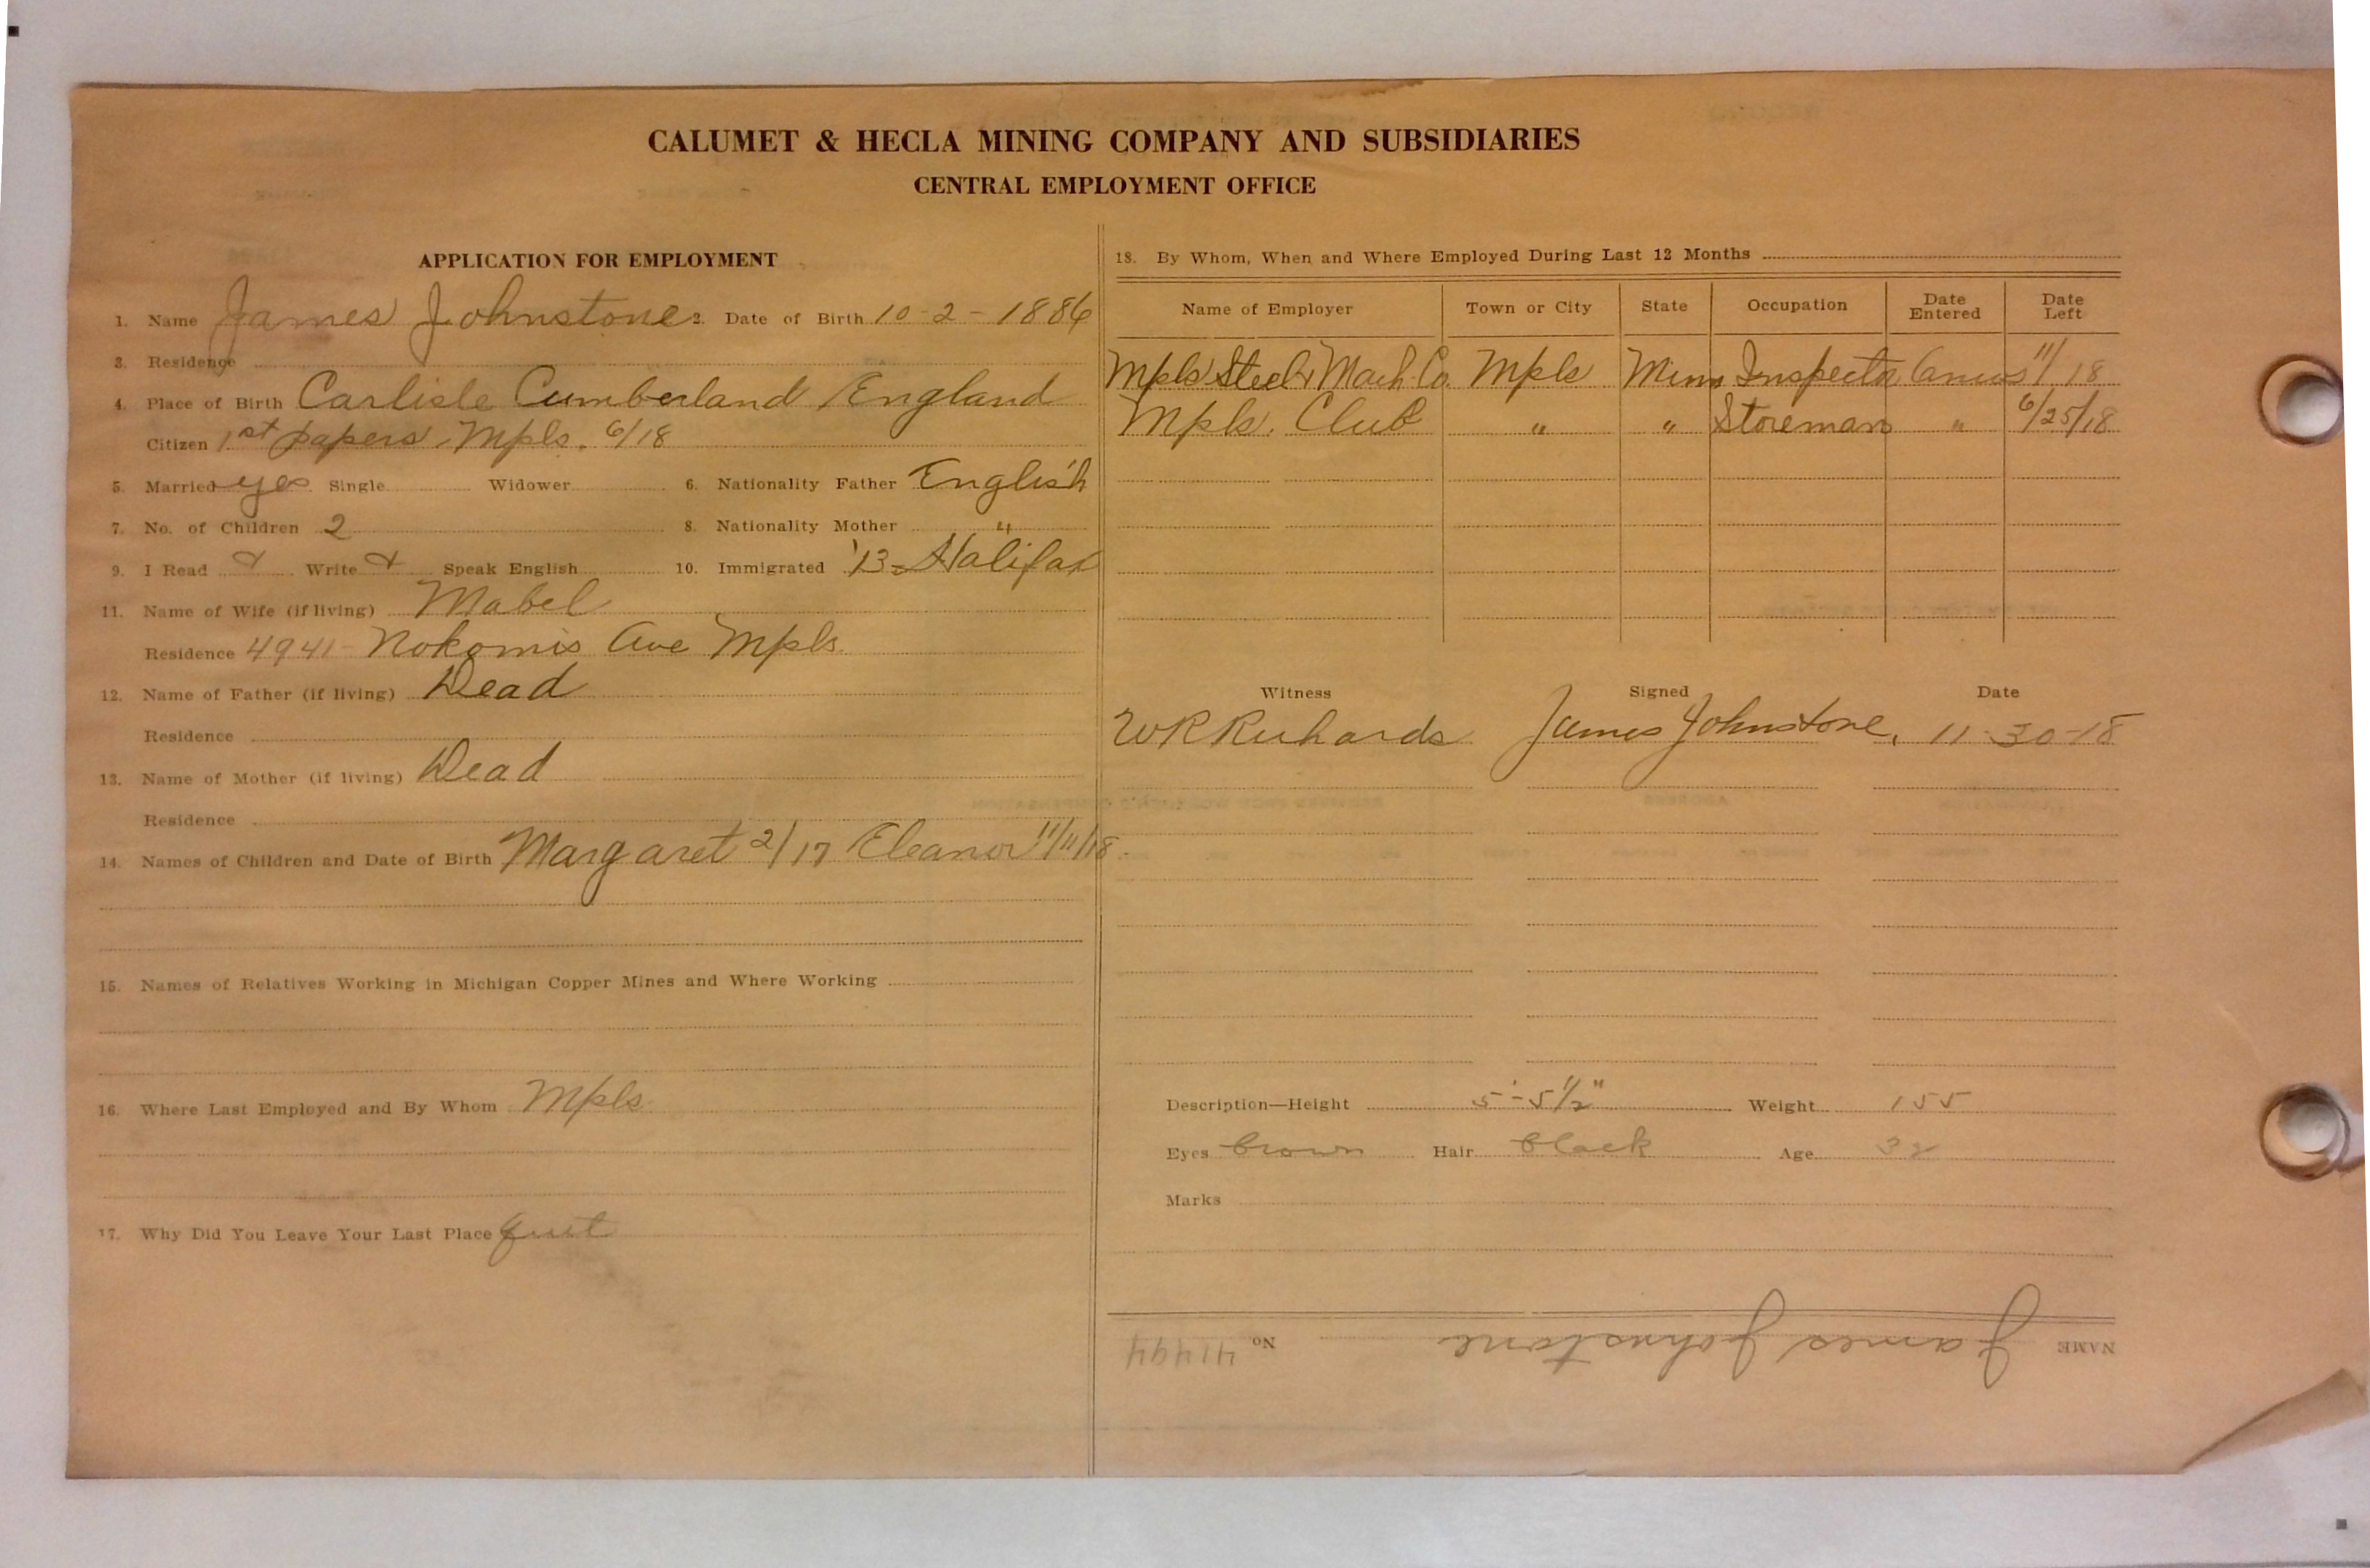 CALUMET & HECLA MINING COMPANY AND SUBSIDIARIES
CENTRAL EMPLOYMENT OFFICE
APPLICATION FOR EMPLOYMENT
1. Name James Johnstone 2. Date of Birth 10-2-1886
3. Residence
4. Place of Birth Carlisle Cumberland England
Citizen 1st papers, Mpls. 6/18
5. Married yes Single Widower 6. Nationality Father English
7. No. of Children 2 8. Nationality Mother "
9. I Read Write Speak English 10. Immigrated '13 - Halifax
11. Name of Wife (if living) Mabel
Residence 4941 - Nokomis Ave Mpls.
12. Name of Father (if living) Dead
Residence
13. Name of Mother (if living) Dead
Residence
14. Names of Children and Date of Birth Margaret 2/17 Eleanor 11/11/18
15. Names of Relatives Working in Michigan Copper Mines and Where Working
16. Where Last Employed and By Whom Mpls
17. Why Did You Leave Your Last Place quit
18. By Whom, When and Where Employed During Last 12 Months
Name of Employer Town or City State Occupation Date Entered Date Left
Mpls Steel & Mach. Co. Mpls Minn Inspector 6 mos 11/18
Mpls. Club " " Storeman " 6/25/18
Witness Signed Date
WR Richards James Johnstone. 11-30-18
Description—Height 5'-5 1/2" Weight 155
Eyes brown Hair black Age 32
Marks
NAME James Johnstone No 41494